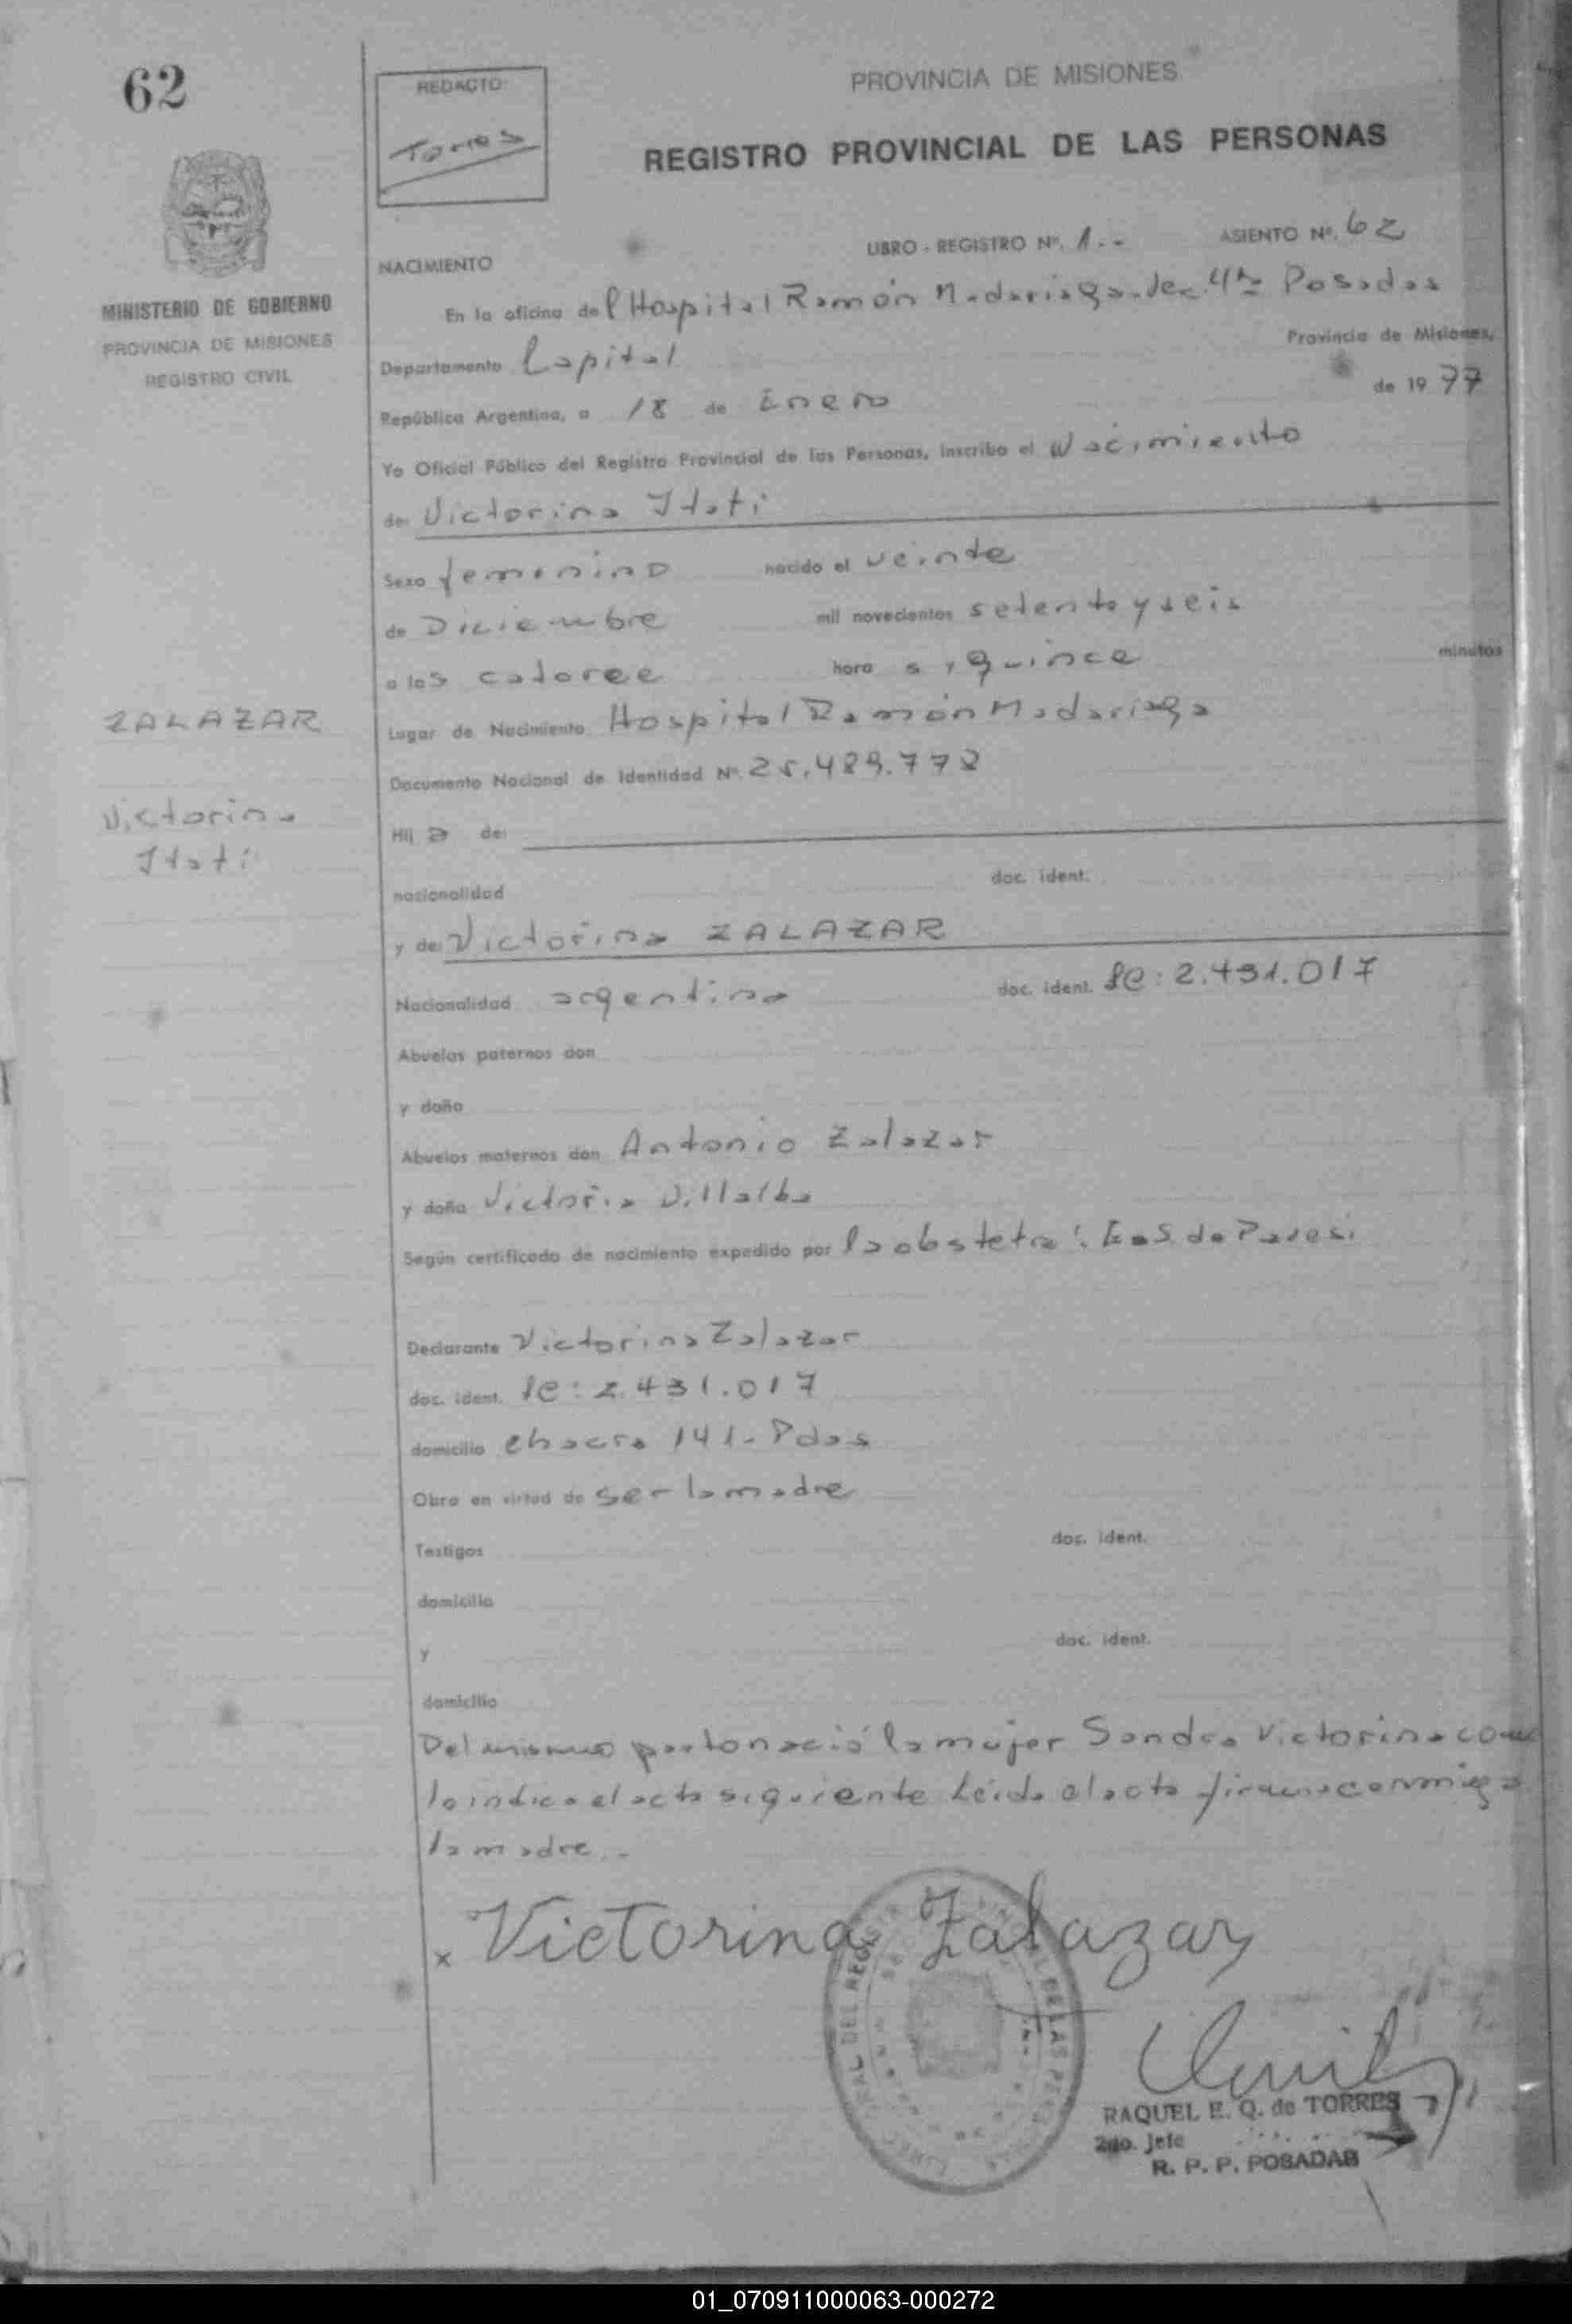 62
REDACTO:
Torres
PROVINCIA DE MISIONES
REGISTRO PROVINCIAL DE LAS PERSONAS
LIBRO - REGISTRO Nº. 1.-- ASIENTO Nº. 62
NACIMIENTO
MINISTERIO DE GOBIERNO
PROVINCIA DE MISIONES
REGISTRO CIVIL
En la oficina del Hospital Ramón Madariaga Posadas
Departamento Capital Provincia de Misiones,
República Argentina, a 18 de Enero de 1977
Yo Oficial Público del Registro Provincial de las Personas, inscribo el Nacimiento
de: Victorina Itati
Sexo femenino nacido el veinte
de Diciembre mil novecientos setenta y seis
a las catorce hora s y quince minutos
ZALAZAR
Lugar de Nacimiento Hospital Ramón Madariaga
Documento Nacional de Identidad Nº. 25.489.778
Victorina
Itati
Hij a de:
nacionalidad doc. ident.
y de: Victorina ZALAZAR
Nacionalidad argentina doc. ident. LC: 2.431.017
Abuelos paternos don
y doña
Abuelos maternos don Antonio Zalazar
y doña Victoria Villalba
Según certificado de nacimiento expedido por la obstetra: E. S. de
Declarante Victorina Zalazar
doc. ident. LC: 2.431.017
domicilio chacra 141- Pdas
Obra en virtud de ser la madre
Testigos doc. ident.
domicilio
y doc. ident.
domicilio
Del mismo parto nació la mujer Sandra Victorina como
lo indica el acta siguiente Leída el acta firma conmigo
la madre.-
x Victorina Zalazar
RAQUEL E. Q. de TORRES
2do. Jefe
R. P. P. POSADAS
01_070911000063-000272